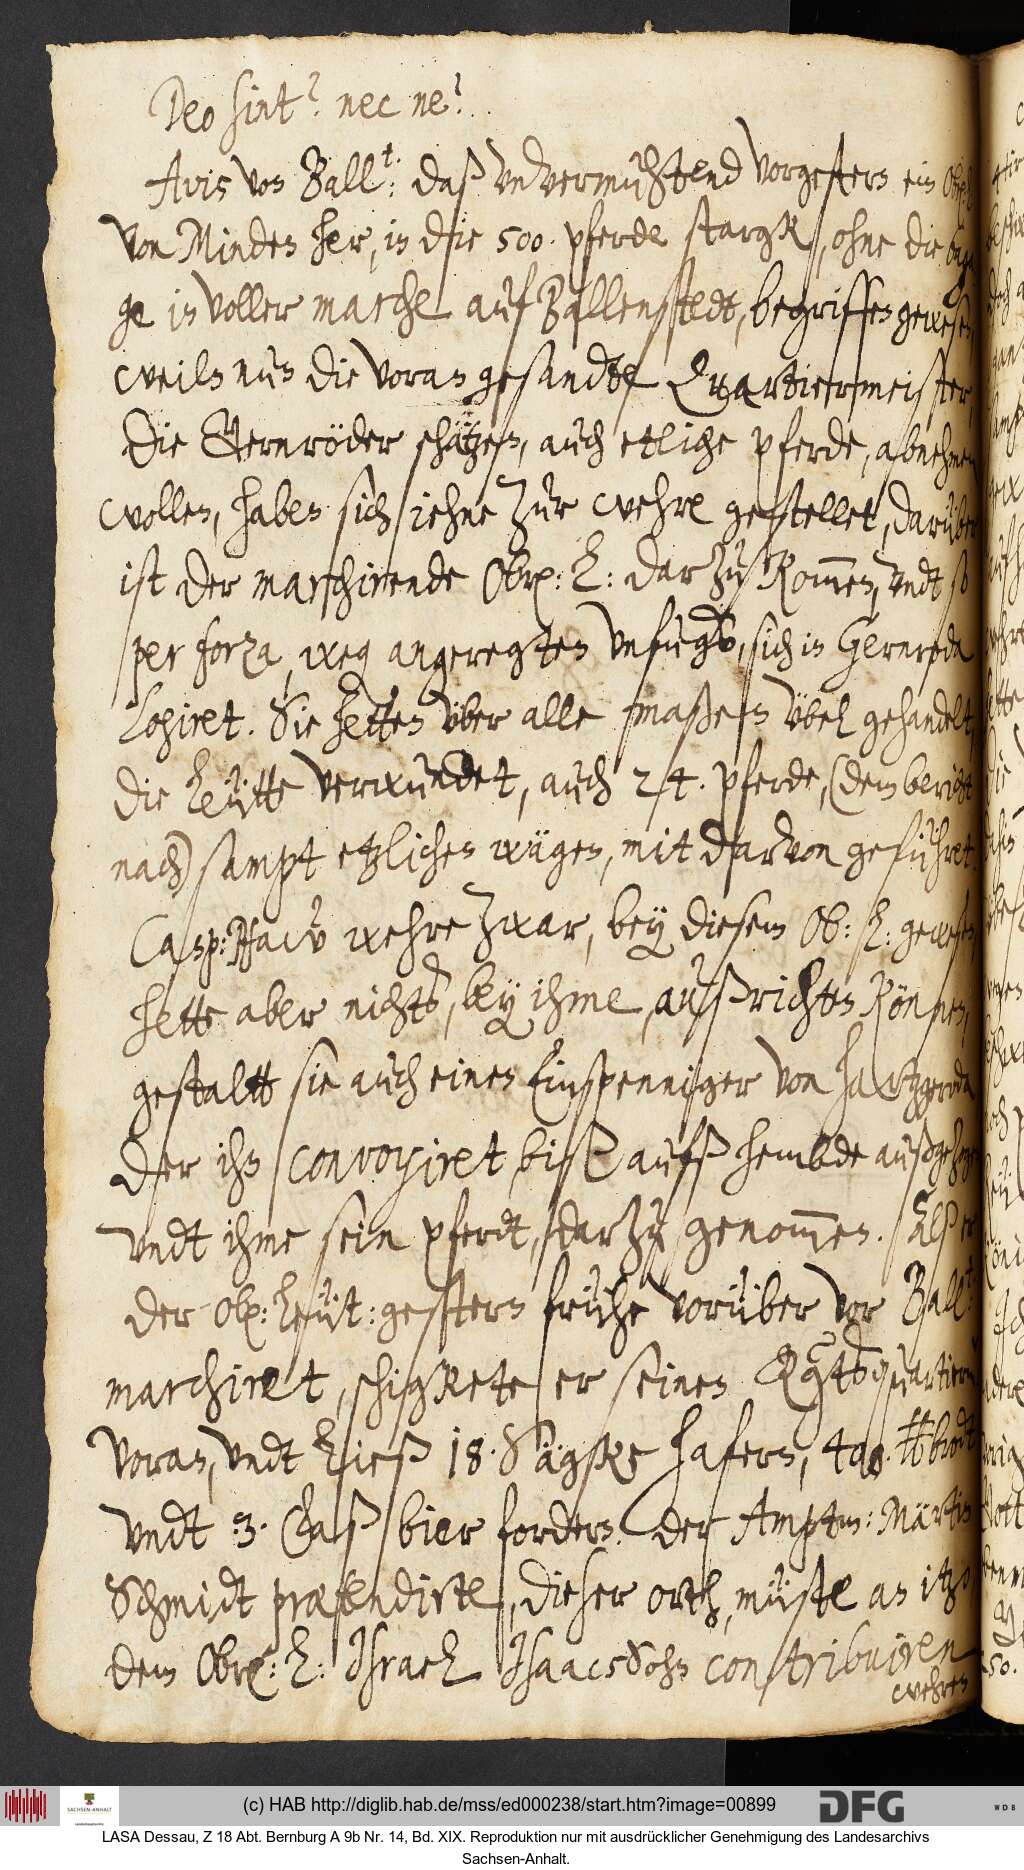 Deo sint? nec ne?
Avis von Ball:t: daß vnvermuhtend vorgestern ein Obr: L:
von Minden her, in die 500. pferde stargk, ohne die baga¬
ge in voller marche auf Ballenstedt, begriffen gewesen,
weiln nun die voran gesandte Quartiermeister,
die Gernröder schützen, auch etliche pferde, abnehmen
wollen, haben sich iehne zur wehre gestellet, darüber
ist der marschirende Obr: L: darzu kommen, vndt so
per forza, weg angeregten vnfugs, sich in Gernroda
Logiret. Sie hetten über alle maßen übel gehandelt,
die Leütte verwundet, auch 24. pferde, (dem bericht
nach) sampt etzlichen wägen, mit darvon geführet.
Casp: Pfaw wehre zwar, bey diesem Ob: L: gewesen,
hette aber nichts, bey ihme, außrichten können,
gestaltt sie auch einen Einspenniger von Hartzgeroda
der ihn convoyiret, biß aufs hembde außgezogen
vndt ihme sein pferdt, darzu genommen. Alß er
der Obr: Leüt: gestern frühe vorüber vor Ball:t:
marchiret, schigkete er seinen Rgtsquartierm:
voran, vndt ließ 18. Sägke hafern, 400. ℔ brodt
vndt 3. Faß bier fordern. Der Amptm: Märtin
Schmidt præsendirte, dieser orth, müste an itzo
dem Obr: L: Israel Isaacs Sohn constribuiren
wehren
(c) HAB http://diglib.hab.de/mss/ed000238/start.htm?image=00899
SACHSEN-ANHALT
DFG
WDB
LASA Dessau, Z 18 Abt. Bernburg A 9b Nr. 14, Bd. XIX. Reproduktion nur mit ausdrücklicher Genehmigung des Landesarchivs
Sachsen-Anhalt.